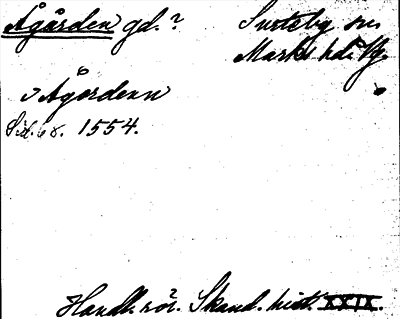 Ågården gd.?
Surteby sn.
Marks hd. Vg.
i Ågordenn
Sid. 68. 1554.
Handl. rör. Skand. hist. XXIX.